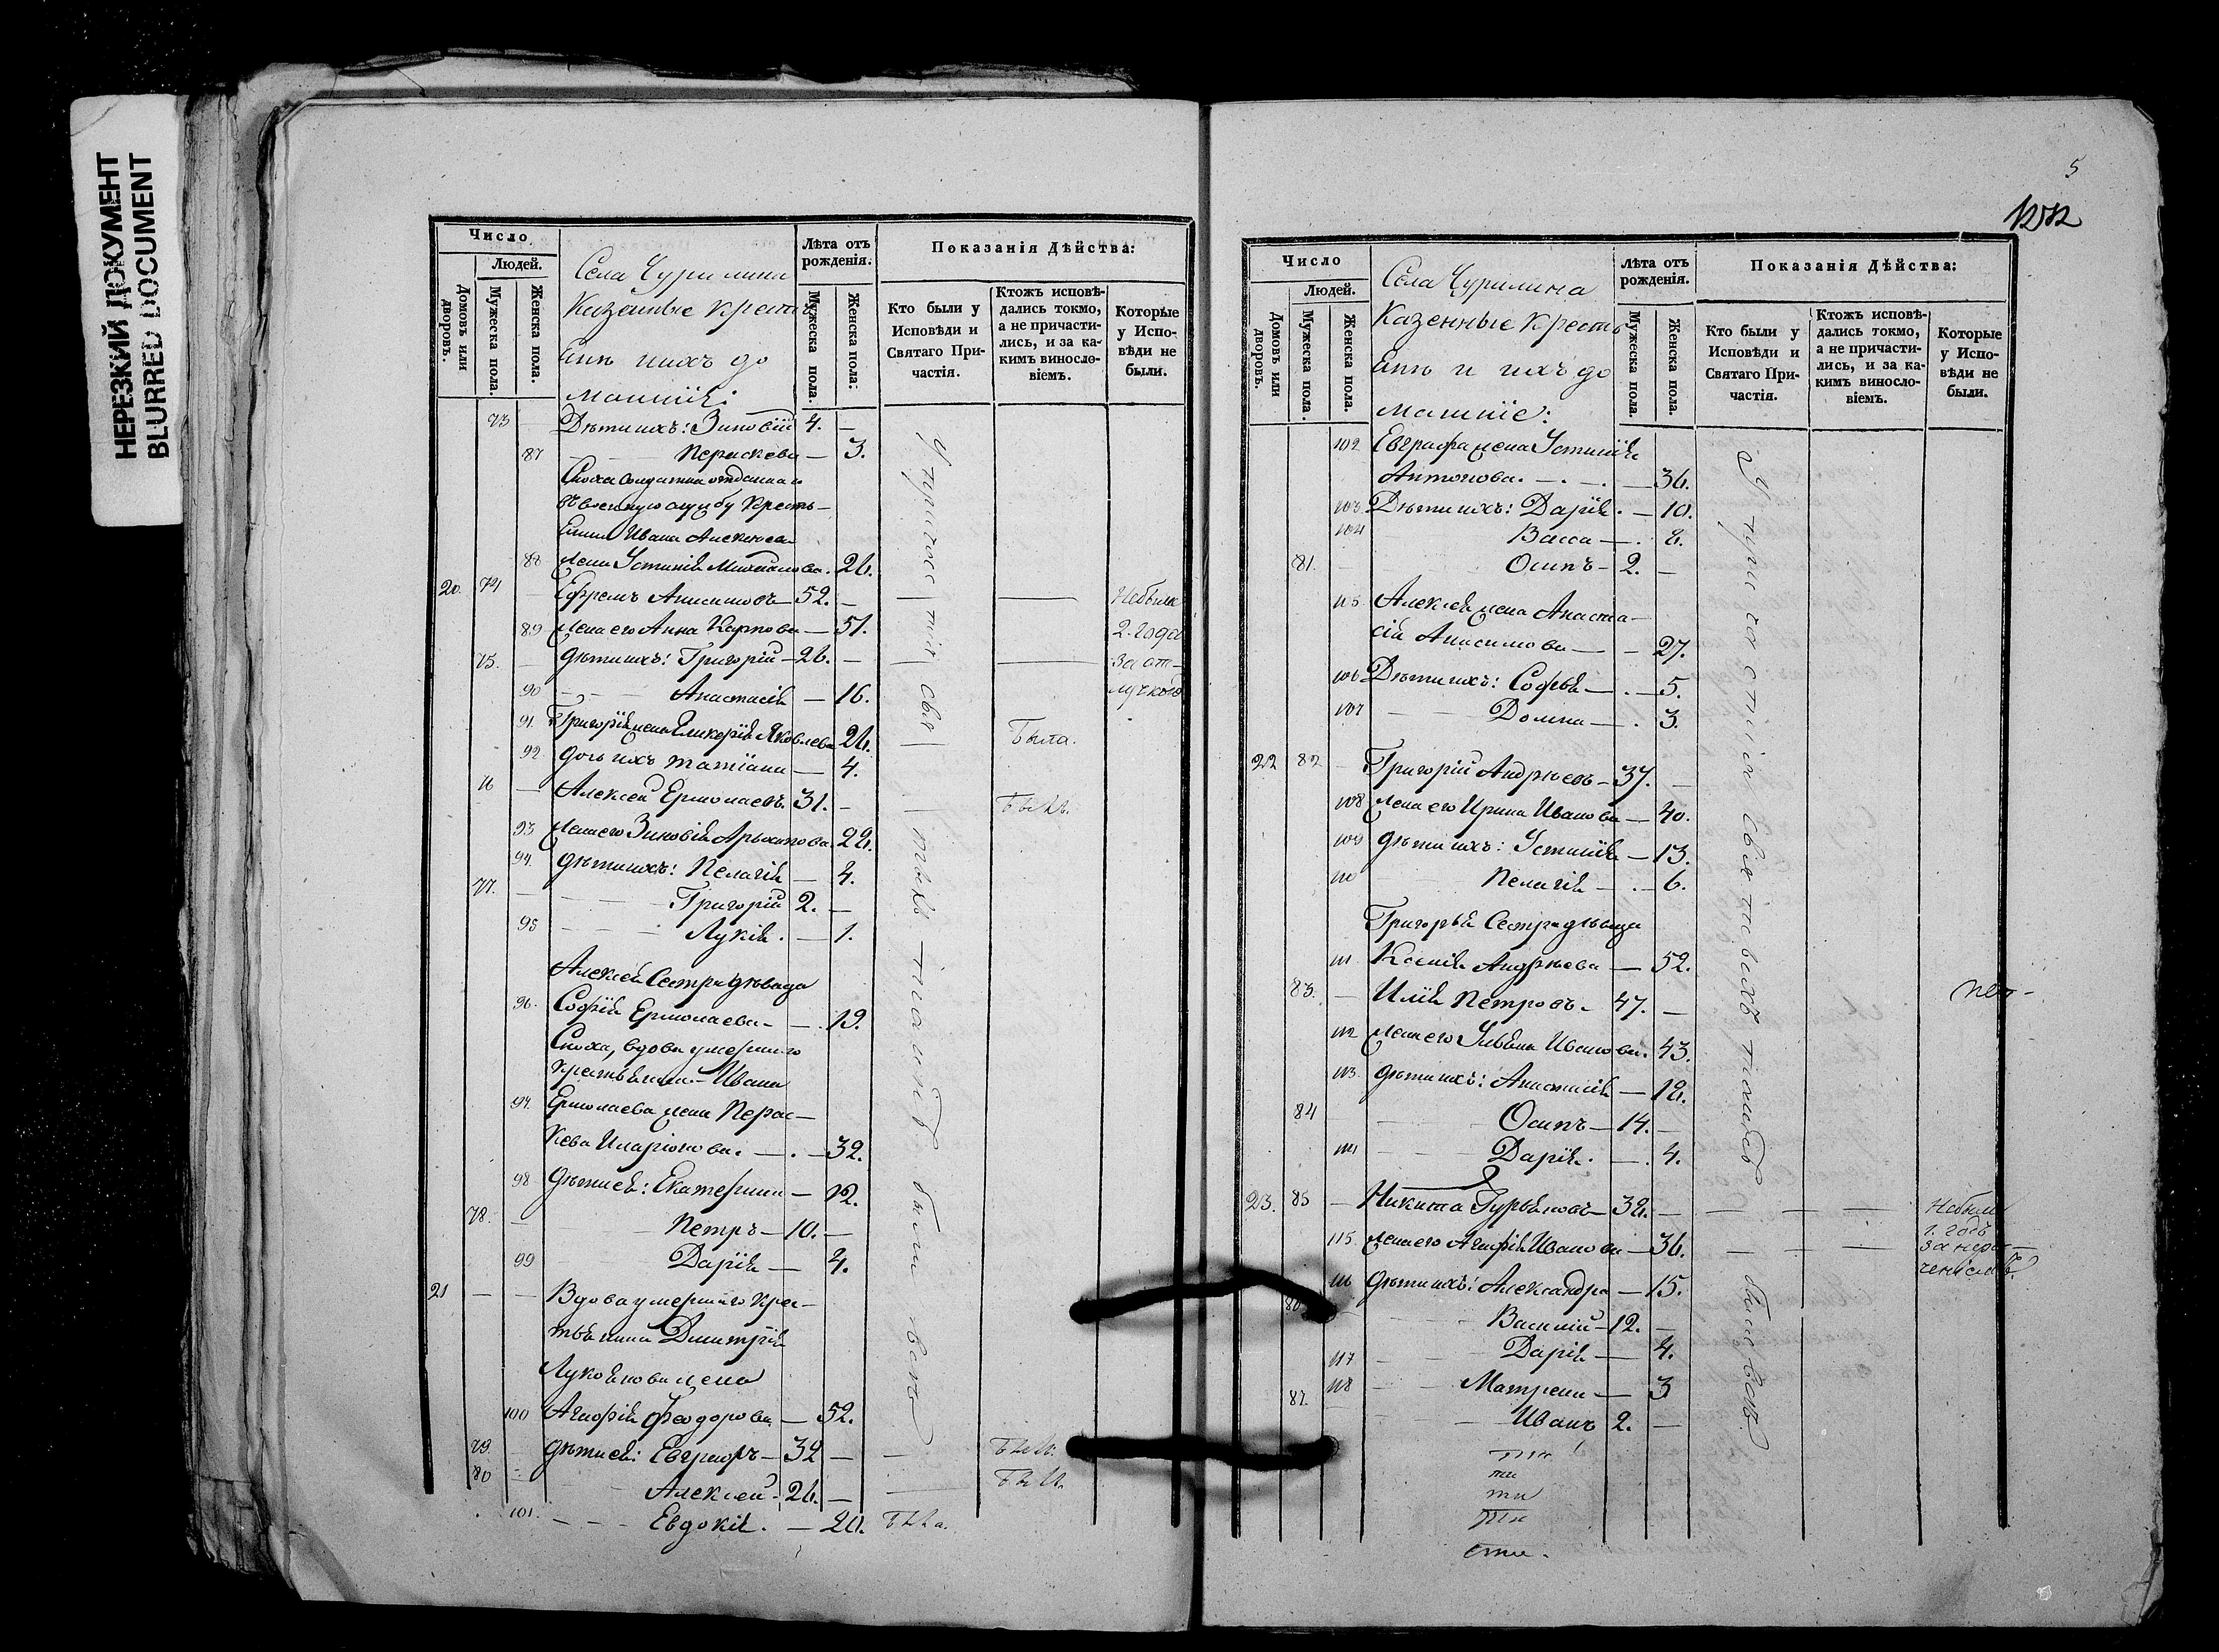 НЕРЕЗКИЙ ДОКУМЕНТ
BLURRED DOCUMENT
Число
Людей.
Домовъ или дворовъ.
Мужеска пола.
Женска пола.
Села Чурилина
Казенные крестья
Ене ихъ до
машніе:
Лѣта отъ рожденія.
Мужеска пола.
Женска пола.
Показанія Дѣйства:
Кто были у Исповѣди и Святаго Причастія.
Ктожъ исповѣдались токмо, а не причастились, и за какимъ винословіемъ.
Которые у Исповѣди не были.
73 — Дѣти ихъ: Зиновій 4. —
87 Параскева — 3.
Сноха солдатка отданнаго
въ военную службу кресть-
янина Ивана Алексѣева
88 жена Устинія Михайлова. 26.
20. 74 — Ефремъ Анисимовъ — 52. — Небыли
89 жена его Анна Карпова — 51. 2. года
75. — дѣти ихъ: Григорій — 26. — за от-
90 Анастасія — 16. лучкою
91. Григорія жена Гликерія Яковлева 26. Была.
92 дочь ихъ Татіана — 4.
76 — Алексей Ермолаевъ 31. — Былъ.
93 жена его Зиновія Архипова 22.
94. дѣти ихъ: Пелагія — 4.
77. — Григорій 2. —
95 Лукія. — 1.
Алексея Сестра дѣвица
96. Софія Ермолаева — 19.
Сноха, вдова умершаго
крестьянина Ивана
97. Ермолаева жена Парас-
кева Иларіонова. — 32.
98 дѣти ея: Екатерина — 12.
78. — Петръ — 10. —
99 Дарія — 4.
21 — — Вдова умершаго кре-
стьянина Димитрія
Лукоянова жена
100 Агафія Феодорова — 52.
79. дѣти ея: Евграфъ — 32 — Былъ.
80 Алексей — 26. — Былъ.
101. Евдокія. — 20. Была.
5
Число
Людей.
Домовъ или дворовъ.
Мужеска пола.
Женска пола.
Села Чурилина
Казенные кресть
Ене и ихъ до
машніе:
Лѣта отъ рожденія.
Мужеска пола.
Женска пола.
Показанія Дѣйства:
Кто были у Исповѣди и Святаго Причастія.
Ктожъ исповѣдались токмо, а не причастились, и за какимъ винословіемъ.
Которые у Исповѣди не были.
102 Евграфа жена Устинія
Антонова. — 36.
103. Дѣти ихъ: Дарія. — 10.
104 Васса — 8.
81. Осипъ — 2. —
105 Алексея жена Анаста-
сія Анисимова — 27.
106 Дѣти ихъ: Софья — 5.
107 Домна — 3.
22 82 — Григорій Андреевъ — 37. —
108 жена его Ирина Иванова — 40.
109 дѣти ихъ: Устинія — 13.
110 Пелагія — 6.
Григорья Сестра дѣвица
111 Ксенія Андреева — 52.
83. — Илія Петровъ. 47. —
112 жена его Ульяна Иванова. 43.
113. дѣти ихъ: Анастасія — 18.
84 Осипъ — 14. —
114 Дарія. — 4.
23. 85 — Никита Гурьяновъ — 38. — Небыли
1. годъ
115. жена его Агафія Иванова — 36. за нера-
116 дѣти ихъ: Александра — 15.
86 Василій — 12. —
117 Дарія — 4.
118 Матрена — 3
87. Иванъ 2. —
У причастія святыхъ таинъ былъ